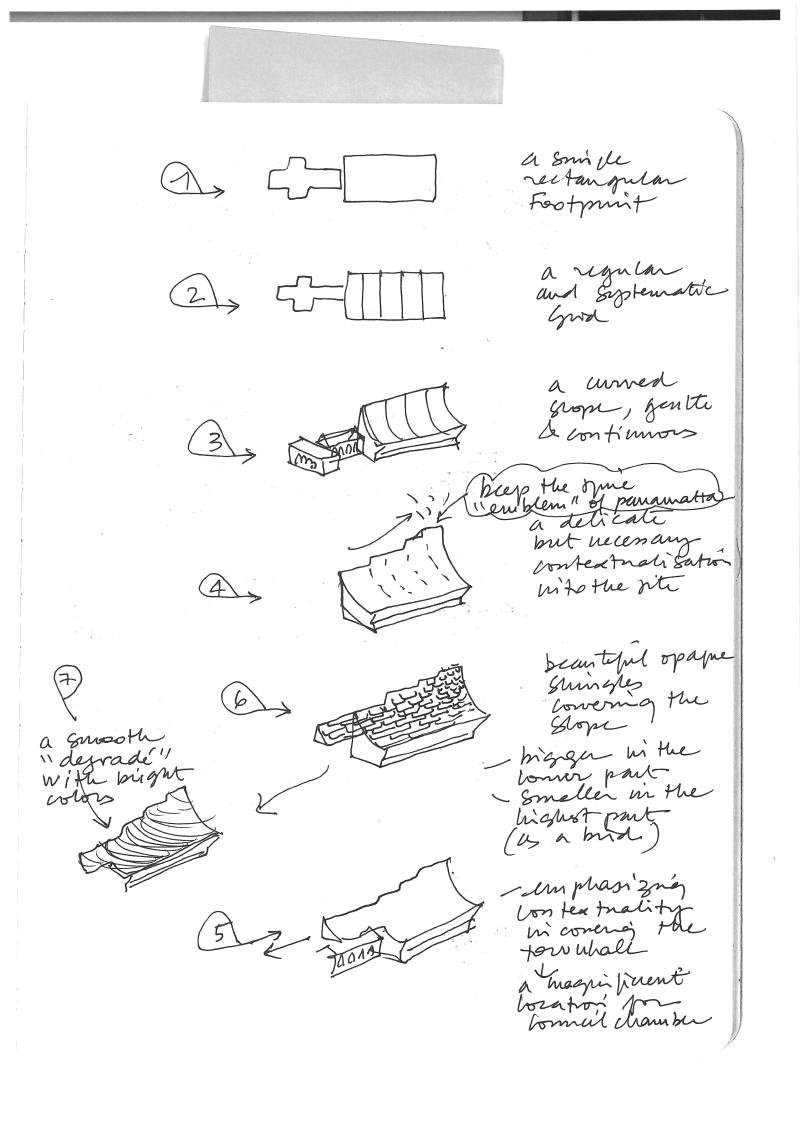 1
a simple
rectangular
Footprint
2
a regular
and systematic
Grid
3
a curved
slope, gentle
& continuous
keep the
"emblem" of parramatta
4
a delicate
but necessary
contextualisation
into the site
7
a smooth
"degradé"
with bright
colors
6
beautiful opaque
shingles
covering the
slope
– bigger in the
lower part
– smaller in the
highest part
(as a bird)
5
– emphasizing
contextuality
in covering the
townhall
a magnificent
location for
council chamber